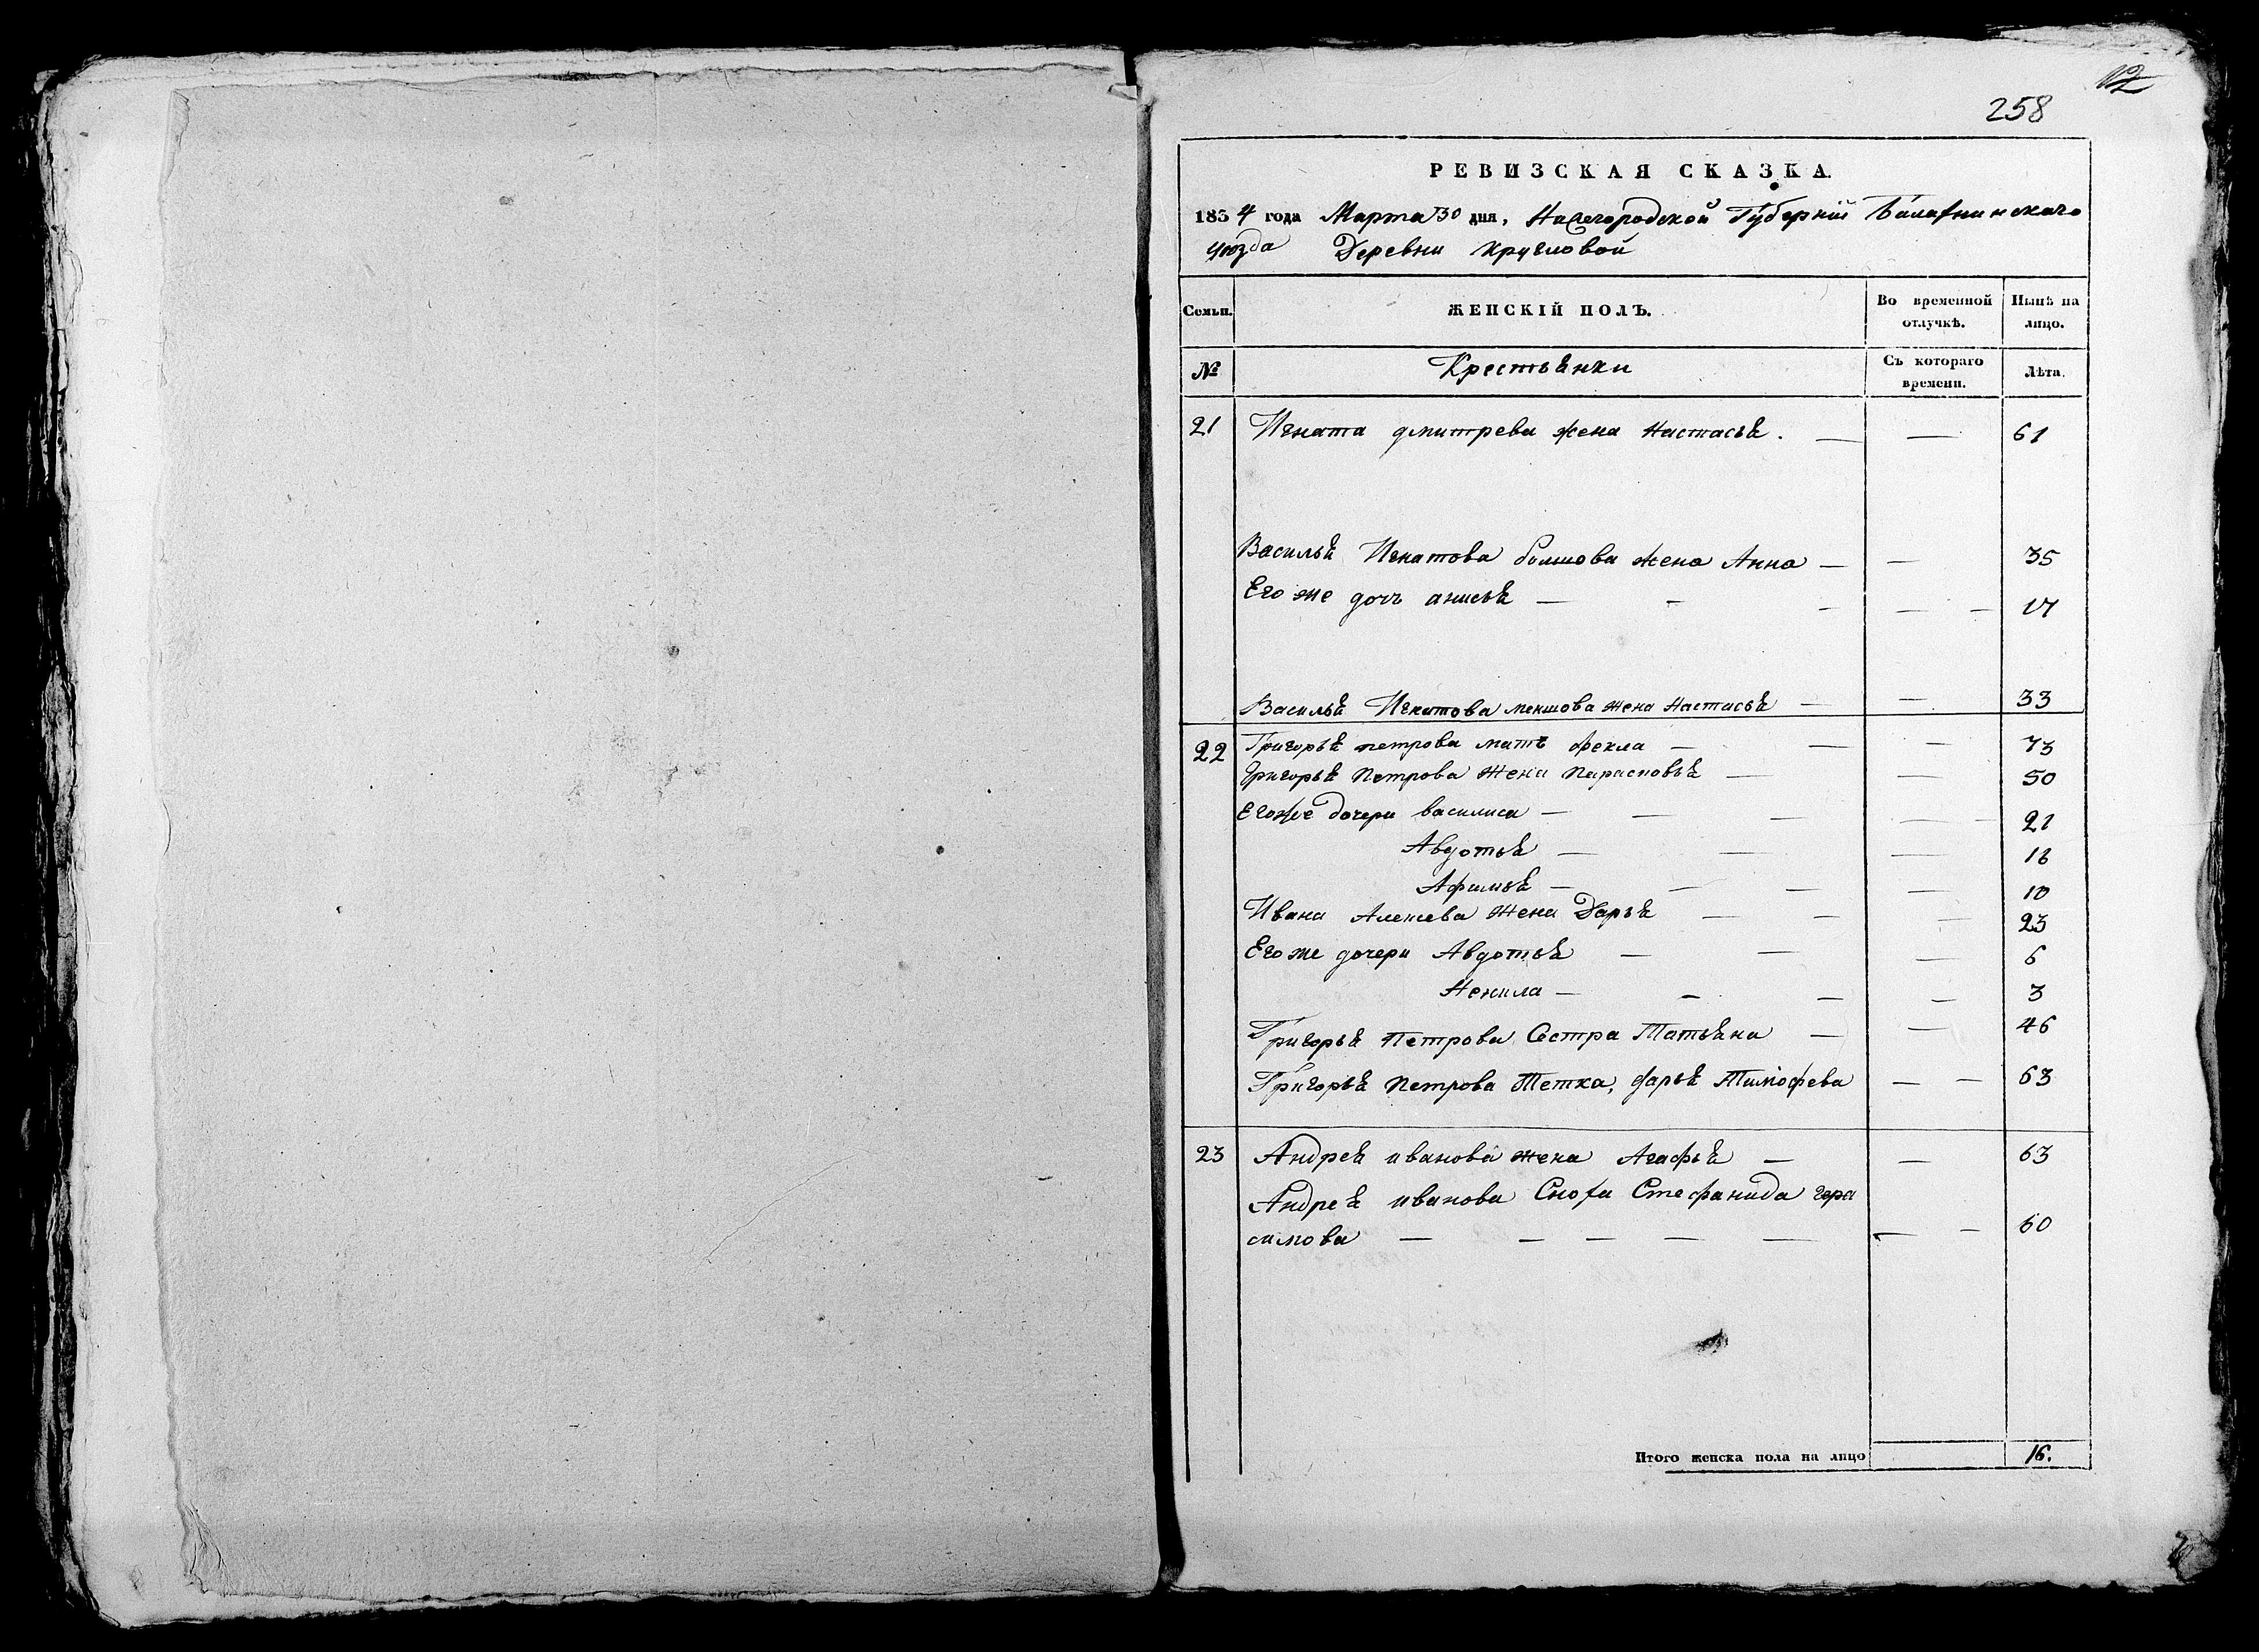 12
258
РЕВИЗСКАЯ СКАЗКА.
1854 года Марта 30 дня, Нижегородской Губерніи Балахнинскаго
уезда Деревни Кругловой
Семьи. ЖЕНСКІЙ ПОЛЪ. Во временной отлучкѣ. Нынѣ на лицо.
№ Крестьянки Съ котораго времени. Лѣта.
21 Игната дмитрева жена Настасья. — — 61
Василья Игнатова болшова жена Анна — — 35
Его же дочь анисья — - - — - 17
Василья Игнатова меншова жена Настасья — — 33
22 Григорья петрова мать фекла — — — 73
Григорья Петрова жена Парасковья — — 50
Егоже дочери василиса — — — — - 21
Авдотья — — — 16
Афимья — — — — 10
Ивана Алексева жена Дарья — — — 23
Его же дочери Авдотья — — — 6
Ненила — - — — 3
Григорья Петрова Сестра Татьяна — — 46
Григорья Петрова Тетка, дарья Тимофева — — 63
23 Андрея иванова жена Агафья — — 63
Андрея иванова Сноха Стефанида гера
симова — — — — — — — 60
Итого женска пола на лицо 16.